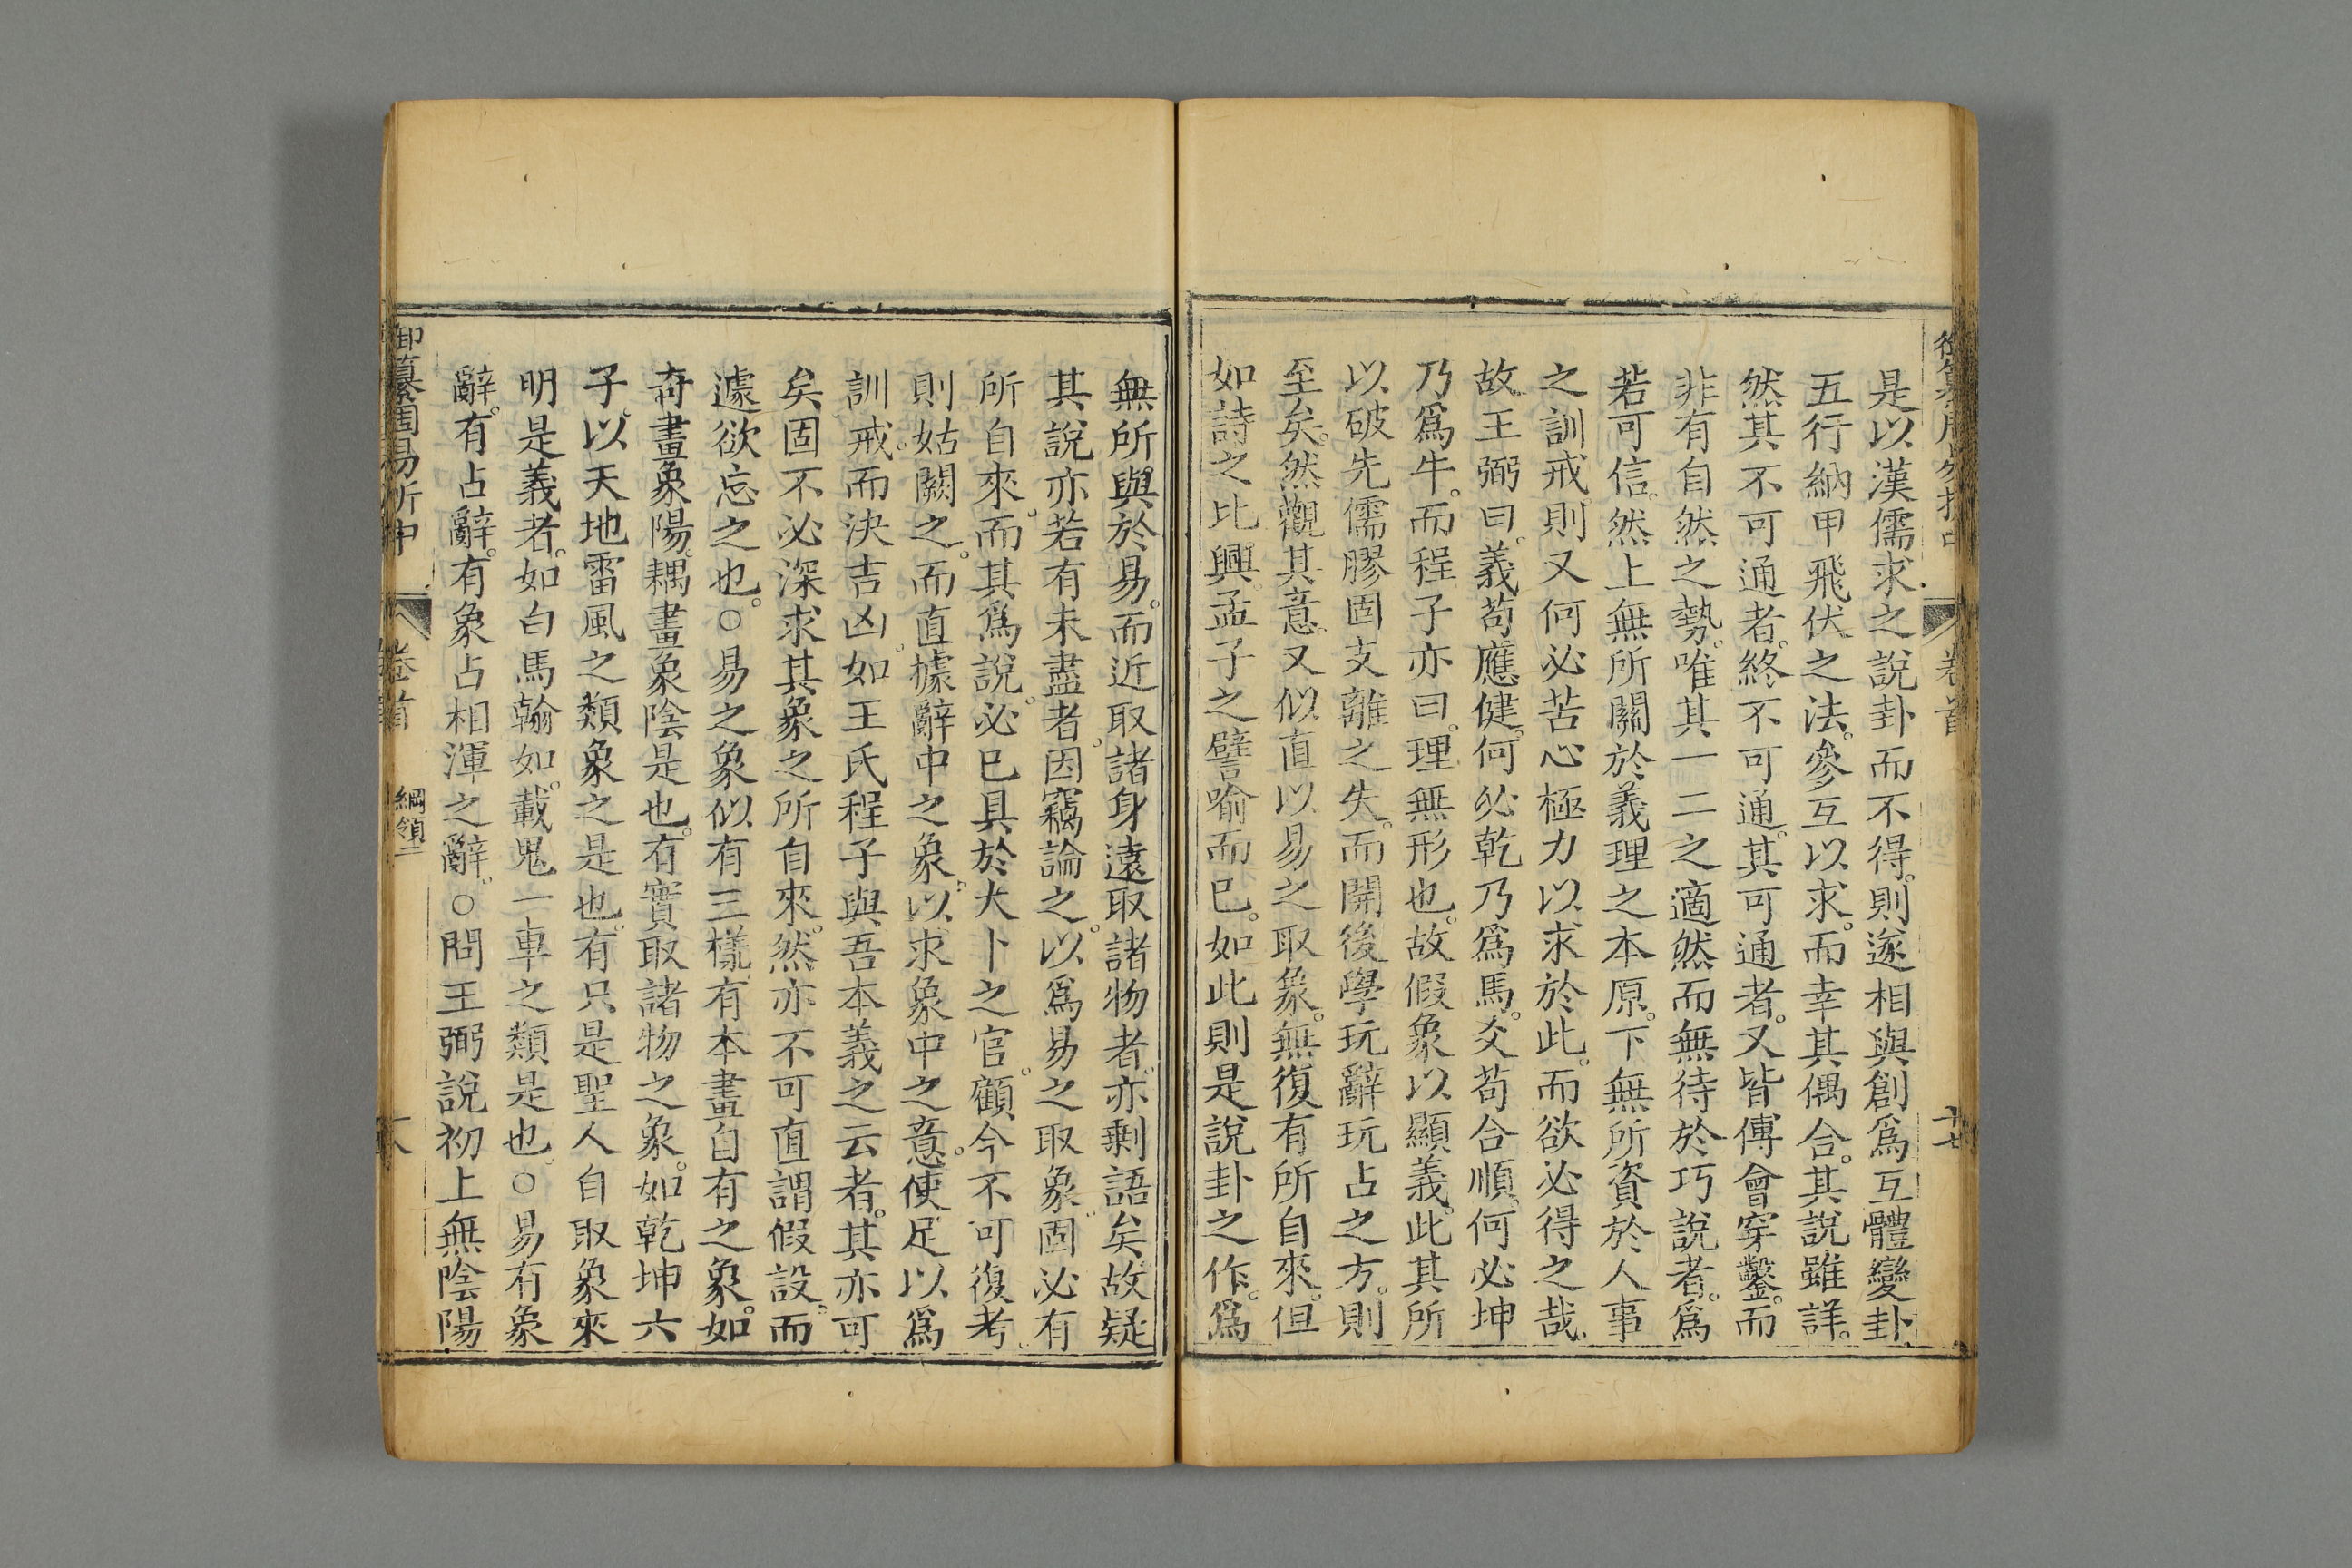 是以漢儒求之說卦而不得。則遂相與創爲互體變卦
五行納甲飛伏之法。參互以求。而幸其偶合。其說雖詳。
然其不可通者。終不可通。其可通者。又皆傅會穿鑿。而
非有自然之勢。唯其一二之適然而無待於巧說者。爲
若可信。然上無所關於義理之本原。下無所資於人事
之訓戒。則又何必苦心極力以求於此。而欲必得之哉。
故王弼曰。義苟應健。何必乾乃爲馬。爻苟合順。何必坤
乃爲牛。而程子亦曰。理無形也。故假象以顯義。此其所
以破先儒膠固支離之失。而開後學玩辭玩占之方。則
至矣。然觀其意。又似直以易之取象。無復有所自來。但
如詩之比興。孟子之譬喻而已。如此則是說卦之作。爲
卷首
十七
無所與於易。而近取諸身遠取諸物者。亦剩語矣。故疑
其說亦若有未盡者。因竊論之。以爲易之取象。固必有
所自來。而其爲說。必已具於大卜之官。顧今不可復考。
則姑闕之。而直據辭中之象。以求象中之意。使足以爲
訓戒。而決吉凶。如王氏程子與吾本義之云者。其亦可
矣。固不必深求其象之所自來。然亦不可直謂假設。而
遽欲忘之也。○易之象似有三樣。有本畫自有之象。如
奇畫象陽。耦畫象陰是也。有實取諸物之象。如乾坤六
子。以天地雷風之類象之是也。有只是聖人自取象來
明是義者。如白馬翰如。載鬼一車之類是也。○易有象
辭。有占辭。有象占相渾之辭。○問王弼說初上無陰陽
御纂周易折中
卷首
綱領二
十八